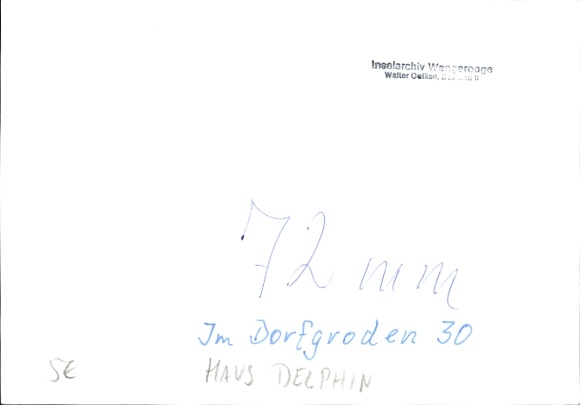 Inselarchiv Wangerooge
Walter Oetken,
72 mm
Im Dorfgroden 30
5€ HAUS DELPHIN